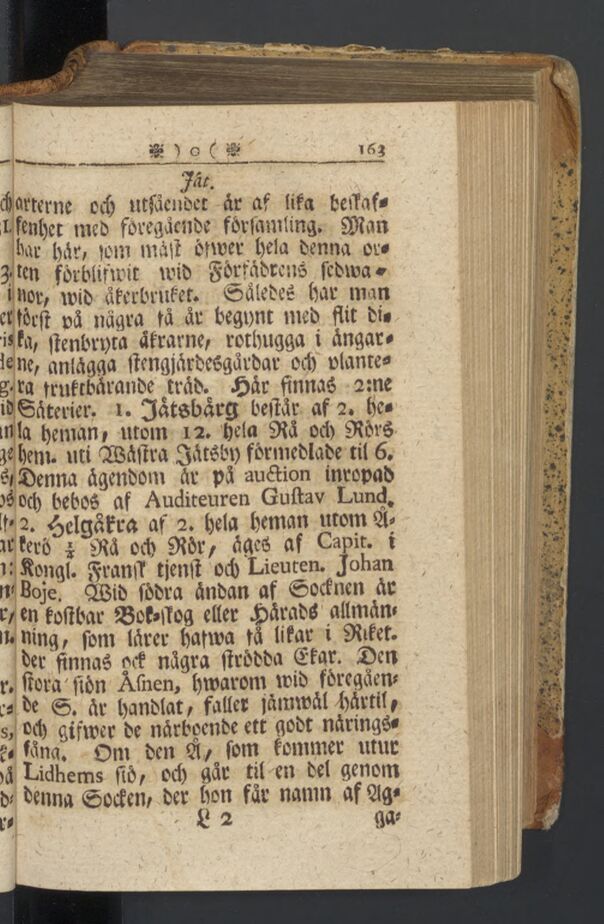 ❉ ) o ( ❉ 163
Jät.
arterne och utsäendet är af lika beskaf-
fenhet med föregående församling. Man
har här, som mäst öfwer hela denna or-
ten förblifwit wid Förfädrens sedwa-
nor, wid åkerbruket. Således har man
först på några få år begynt med flit di-
ka, stenbryta åkrarne, rothugga i ängar-
ne, anlägga stengjärdesgårdar och plante-
ra fruktbärande träd. Här finnas 2:ne
Säterier. 1. Jätsbärg består af 2. he-
la heman, utom 12. hela Rå och Rörs
hem. uti Wästra Jätsby förmedlade til 6.
Denna ägendom är på auction inropad
och bebos af Auditeuren Gustav Lund.
2. Helgåkra af 2. hela heman utom Å-
kerö ¼ Rå och Rör, äges af Capit. i
Kongl. Fransk tjenst och Lieuten. Johan
Boje. Wid södra ändan af Socknen är
en kostbar Bok-skog eller Härads allmän-
ning, som lärer hafwa få likar i Riket.
der finnas ock några strödda Ekar. Den
stora siön Åsnen, hwarom wid föregåen-
de S. är handlat, faller jämwäl härtil,
och gifwer de närboende ett godt närings-
fång. Om den Å, som kommer utur
Lidhems siö, och går til en del genom
denna Socken, der hon får namn af Ag-
L 2 ga-